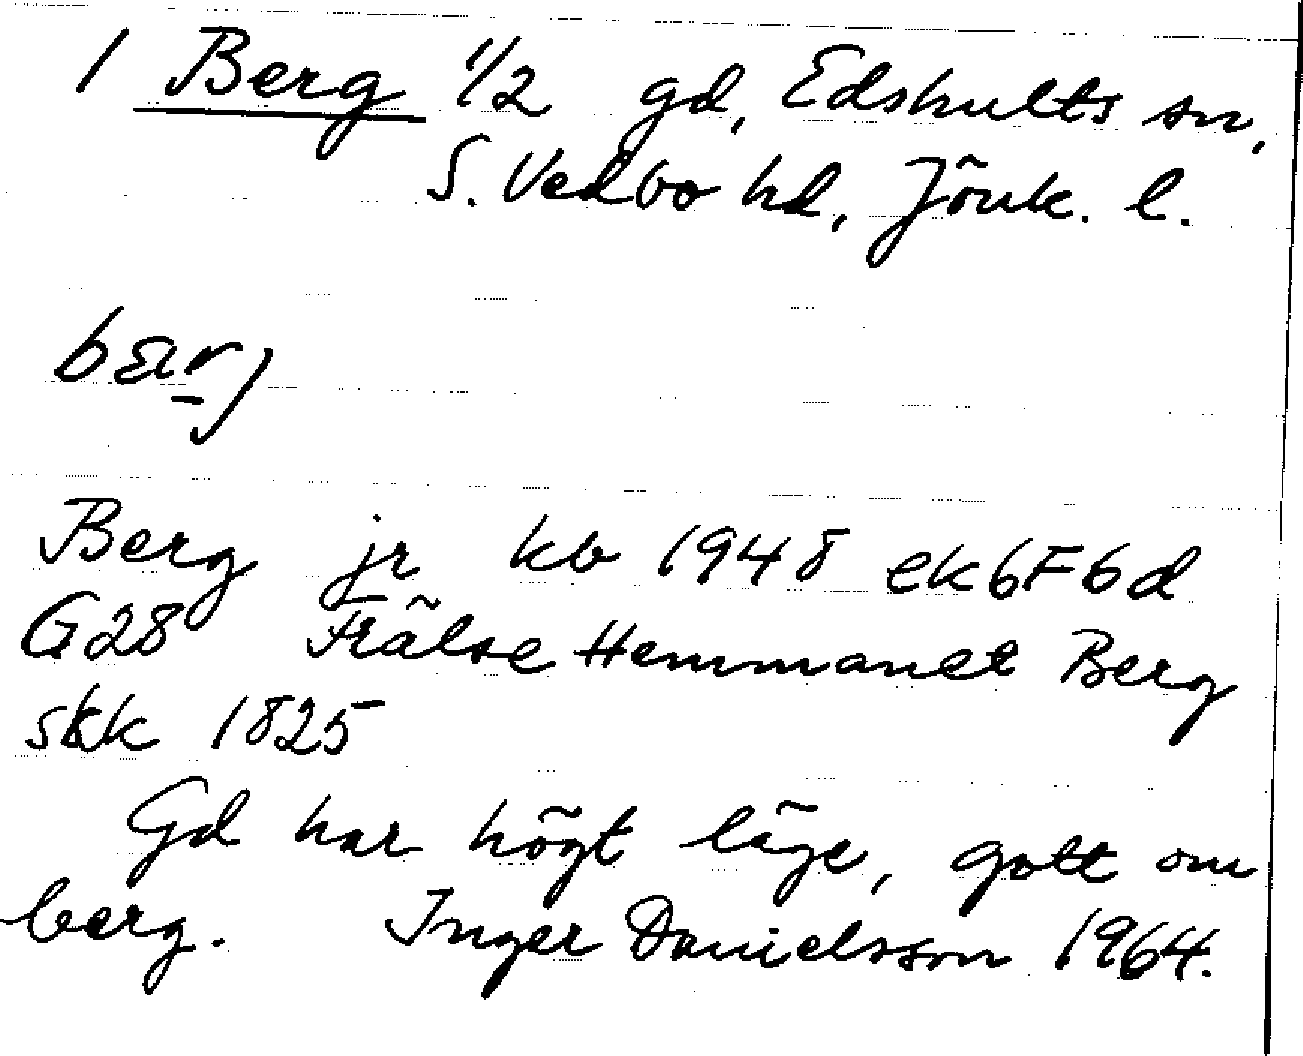 1 Berg 1/2 gd, Edshults sn,
S. Vedbo hd, Jönk. l.
bær̠j
Berg jr kb 1948 ek 6F6d
G28 Frälse Hemmanet Berg
skk 1825
Gd har högt läge, gott om
berg. Inger Danielsson 1964.